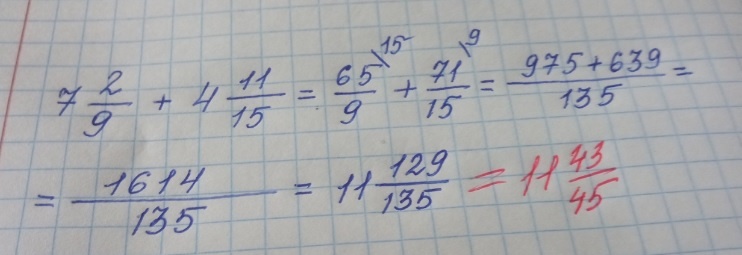 7 2/9 + 4 11/15 = 65/9 \15 + 71/15 \9 = 975+639/135 =
= 1614/135 = 11 129/135 = 11 43/45